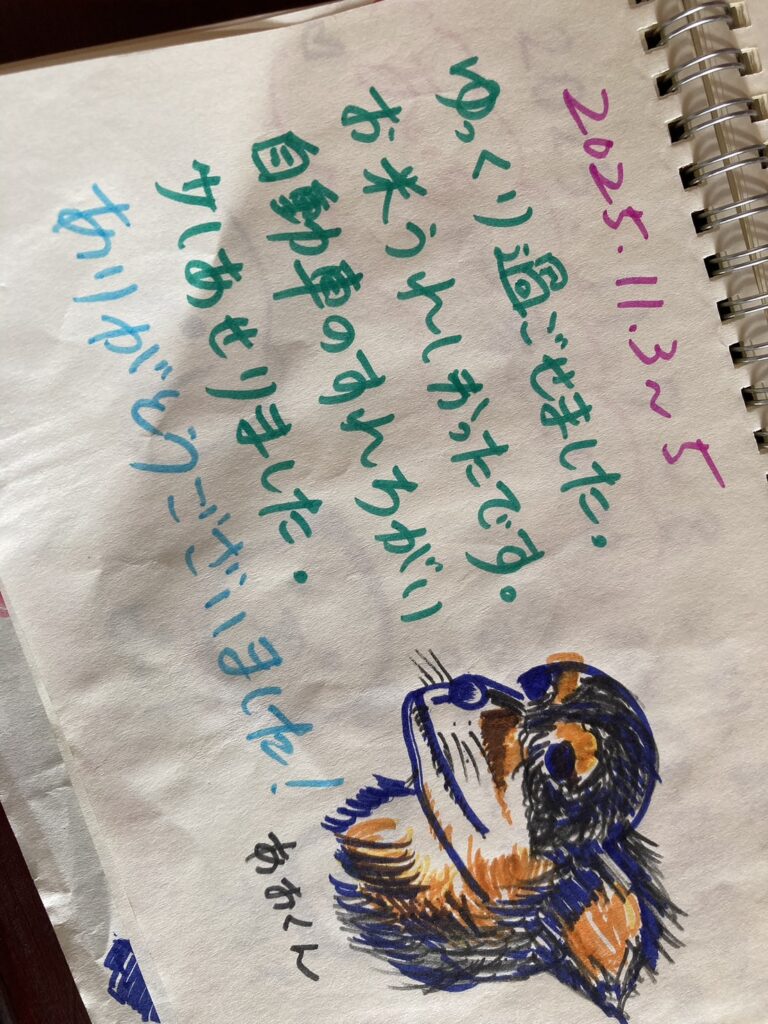 2025.11.3~5
ゆっくり過ごせました。
お米うれしかったです。
自動車のすれちがい
少しあせりました。
ありがとうございました!
あおくん